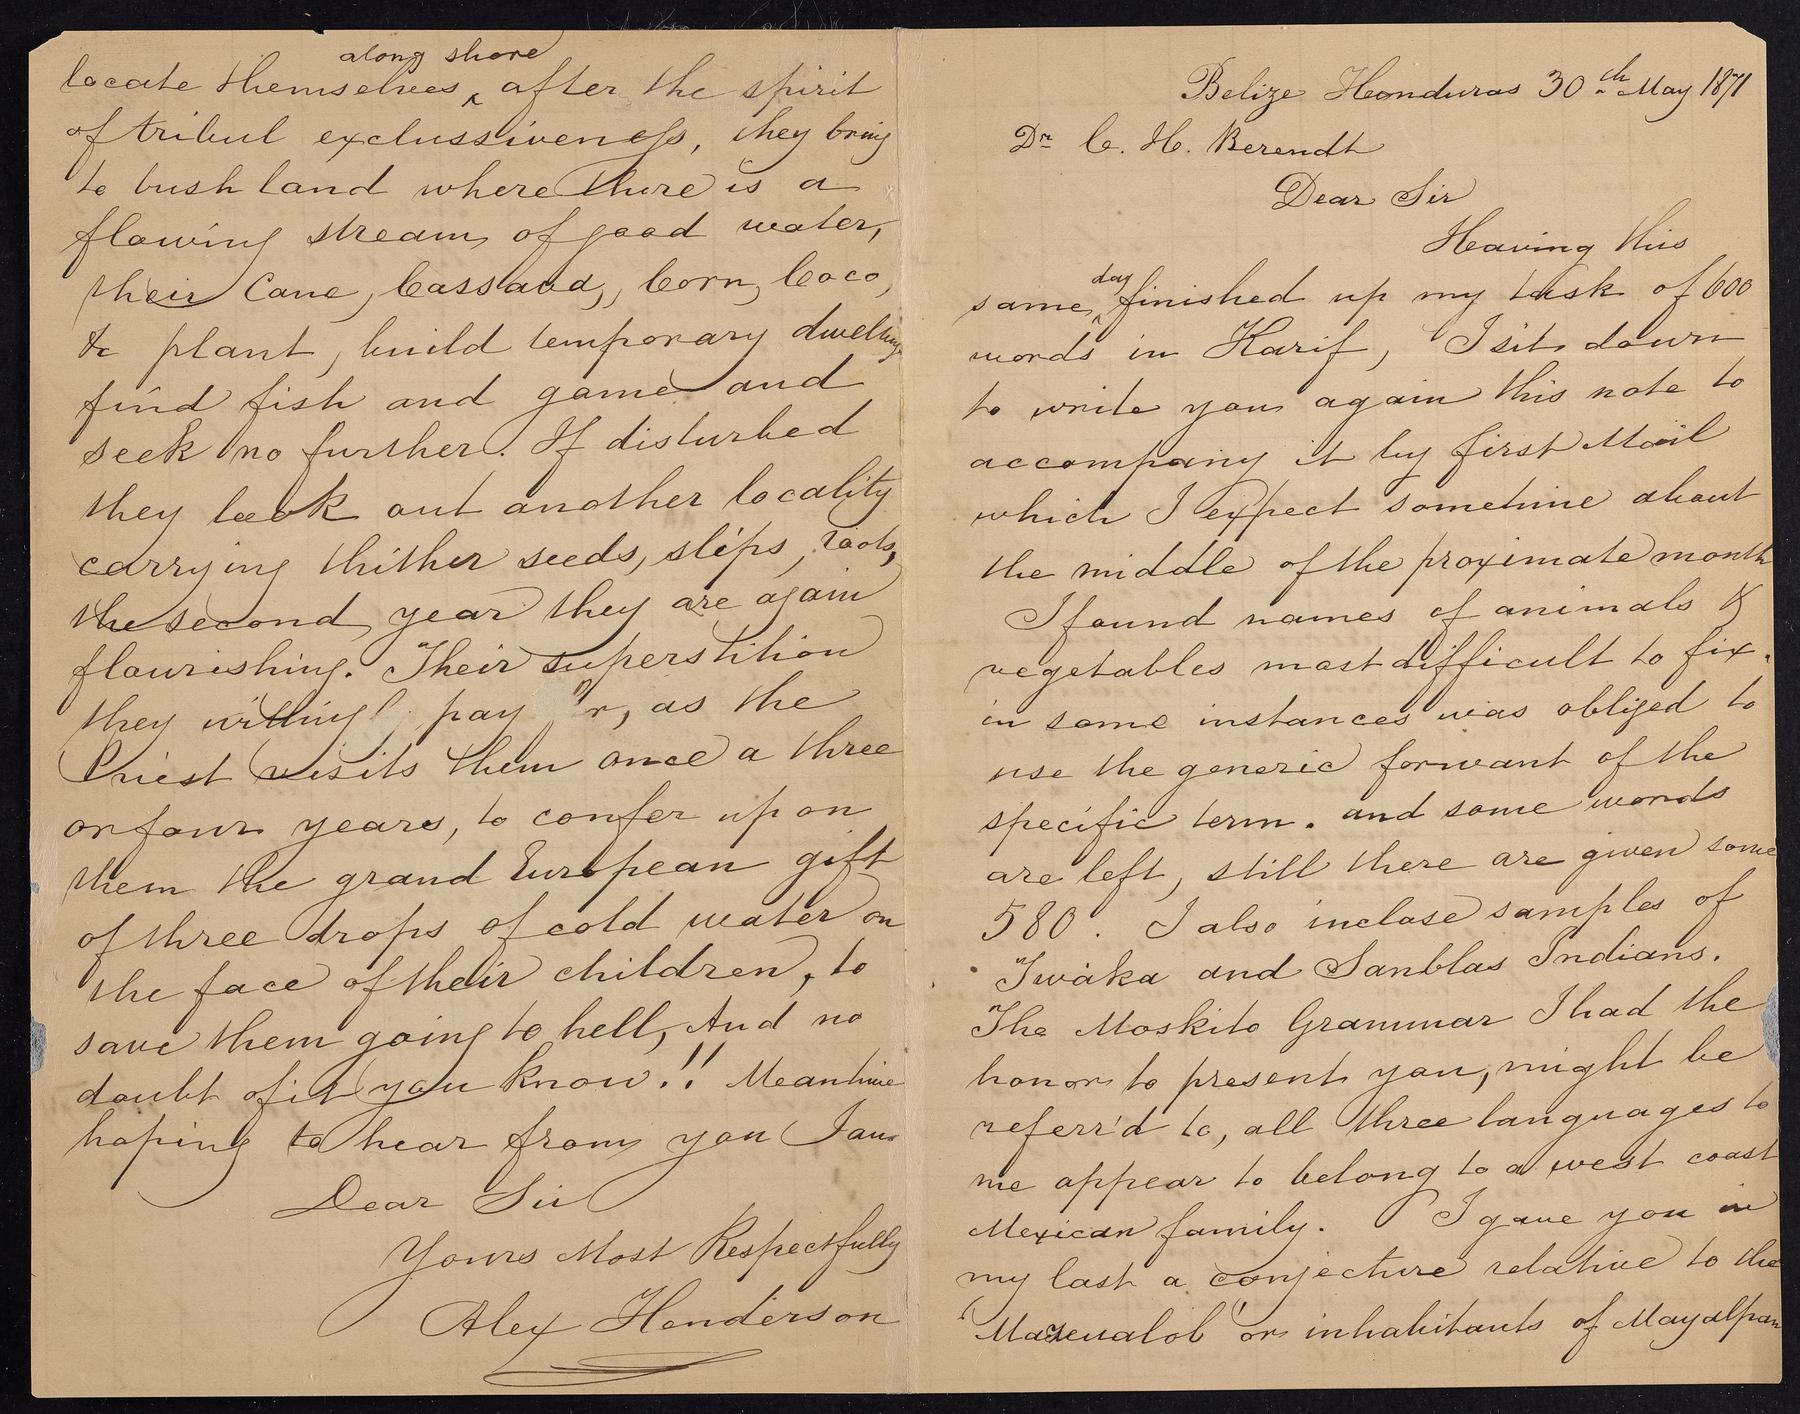 Belize Honduras 30th May 1871
Dr C. H. Berendt
Dear Sir
Heaving this
same day finished up my task of 600
words in Karif, I sit down
to write you again this note to
accompany it by first Mail
which I expect sometime about
the middle of the proximate month
I found names of animals &
vegetables most difficult to fix.
in some instances was obliged to
use the generic forwant of the
specific term. and some words
are left, still there are given some
580. I also inclose samples of
Twaka and Sanblas Indians.
The Moskito Grammar I had the
honor to present you, might be
referr'd to, all three languages to
me appear to belong to a west coast
Mexican family. I gave you in
my last a conjecture relative to the
"Masenalob" or inhabitants of Mayalpan
locate themselves along shore after the spirit
of tribul exclussiveness, they bring
to bush land where there is a
flowing stream of good water,
their Cane, Cassava, Corn, Coco,
to plant, build temporary dwellings
find fish and game and
seek no further. If disturbed
they look out another locality
carrying thither seeds, slips, roots,
the second year they are again
flourishing. Their superstition
they willingly pay as the
Priest visits them once a three
or four years, to confer upon
them the grand European gift
of three drops of cold water on
the face of their children, to
save them going to hell, And no
doubt of it you know!! Meantime
hoping to hear from you I am
Dear Sir
Yours Most Respectfully
Alex Henderson